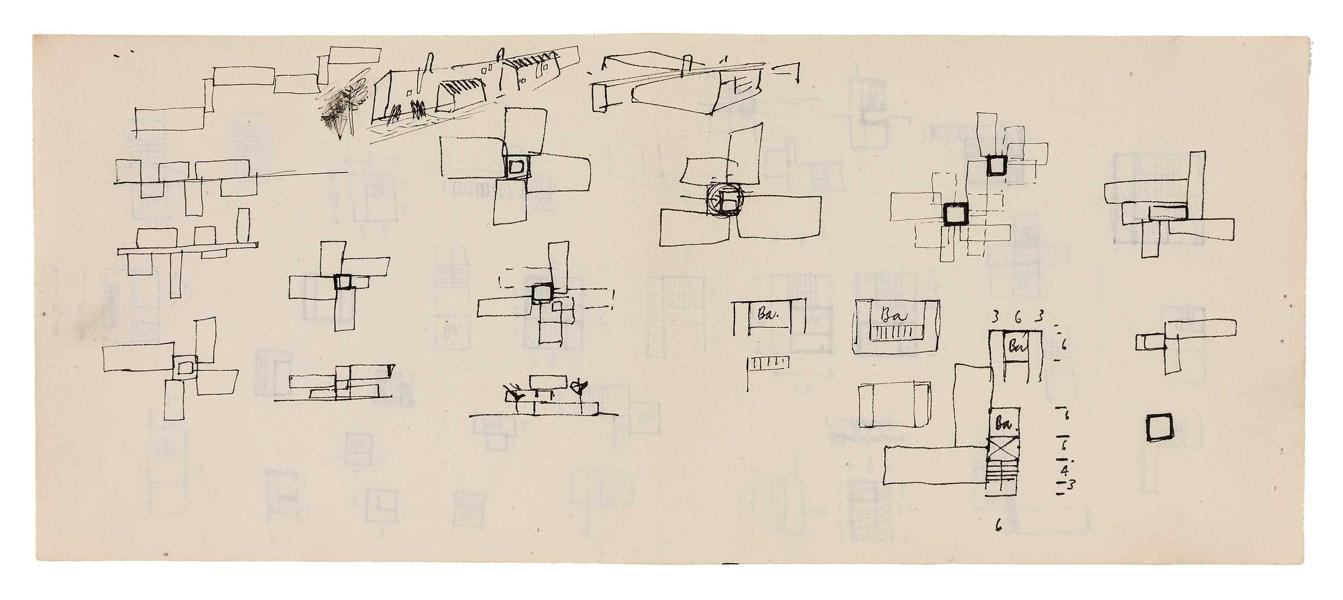 Ba.
Ba
3 6 3
Ba
6
Ba.
6
6
4
3
6